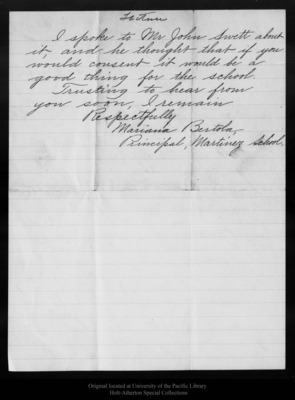 I spoke to Mr John Swett about
it, and he thought that if you
would consent it would be a
good thing for the school.
Trusting to hear from
you soon, I remain
Respectfully
Mariana Bertola,
Principal, Martinez School.
Original located at University of the Pacific Library
Holt-Atherton Special Collections